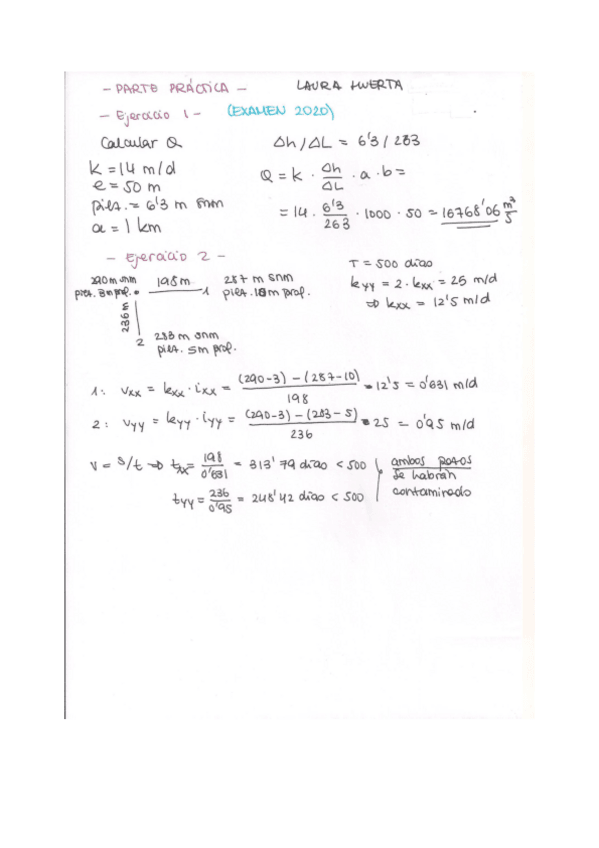 - PARTE PRÁCTICA -
LAURA HUERTA
- Ejercicio 1 - (EXAMEN 2020)
Calcular Q
Δh/ΔL = 6'3 / 263
K = 14 m/d
e = 50 m
piez. = 6'3 m snm
a = 1 km
Q = K · Δh/ΔL · a · b =
= 14 · 6'3/263 · 1000 · 50 = 16768'06 m³/s
- Ejercicio 2 -
290 m snm
piez. 3m prof.
198m
1
287 m snm
piez. 10m prof.
236 m
2
283 m snm
piez. 5m prof.
T = 500 días
kyy = 2 · kxx = 25 m/d
⇒ kxx = 12'5 m/d
1: Vxx = kxx · ixx = (290-3) - (287-10) / 198 · 12'5 = 0'631 m/d
2: Vyy = kyy · iyy = (290-3) - (283-5) / 236 · 25 = 0'95 m/d
V = s/t ⇒ txx = 198/0'631 = 313'79 días < 500
tyy = 236/0'95 = 248'42 días < 500
ambos pozos
se habrán
contaminado